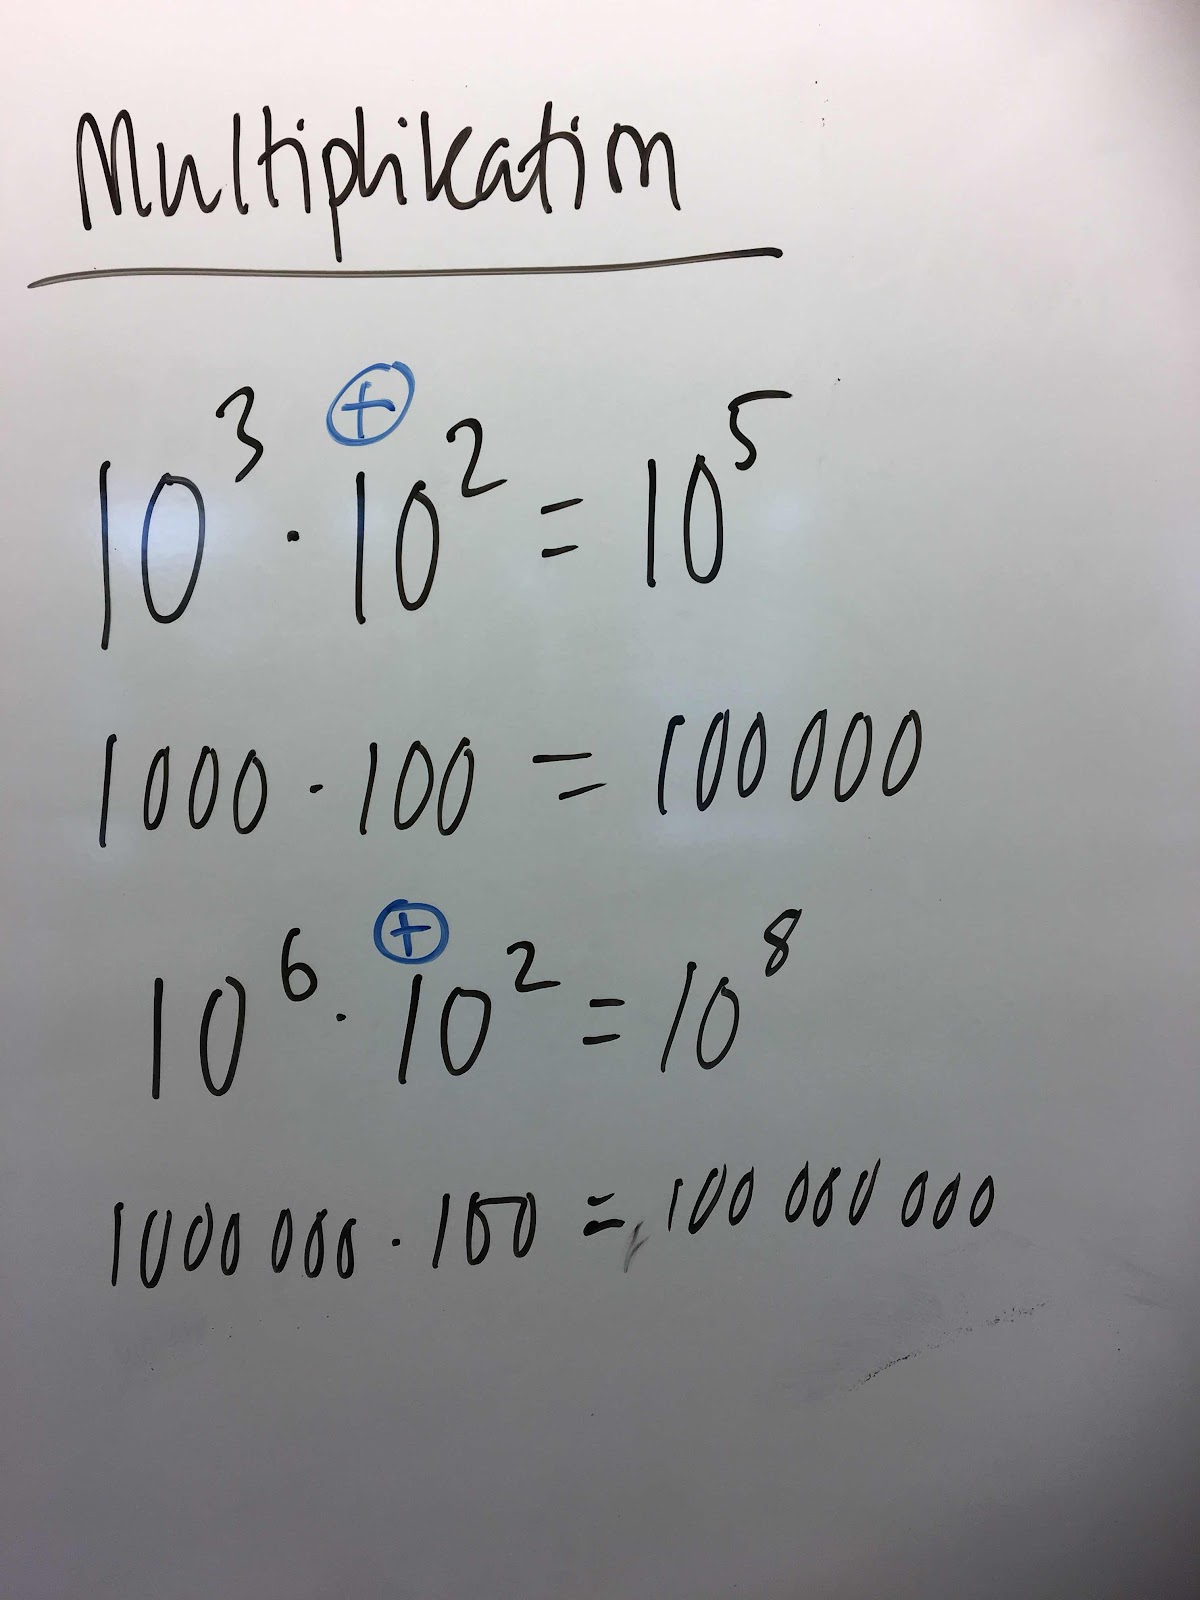 Multiplikation
10³ ⊕ · 10² = 10⁵
1000 · 100 = 100 000
10⁶ ⊕ · 10² = 10⁸
1000 000 · 100 = 100 000 000